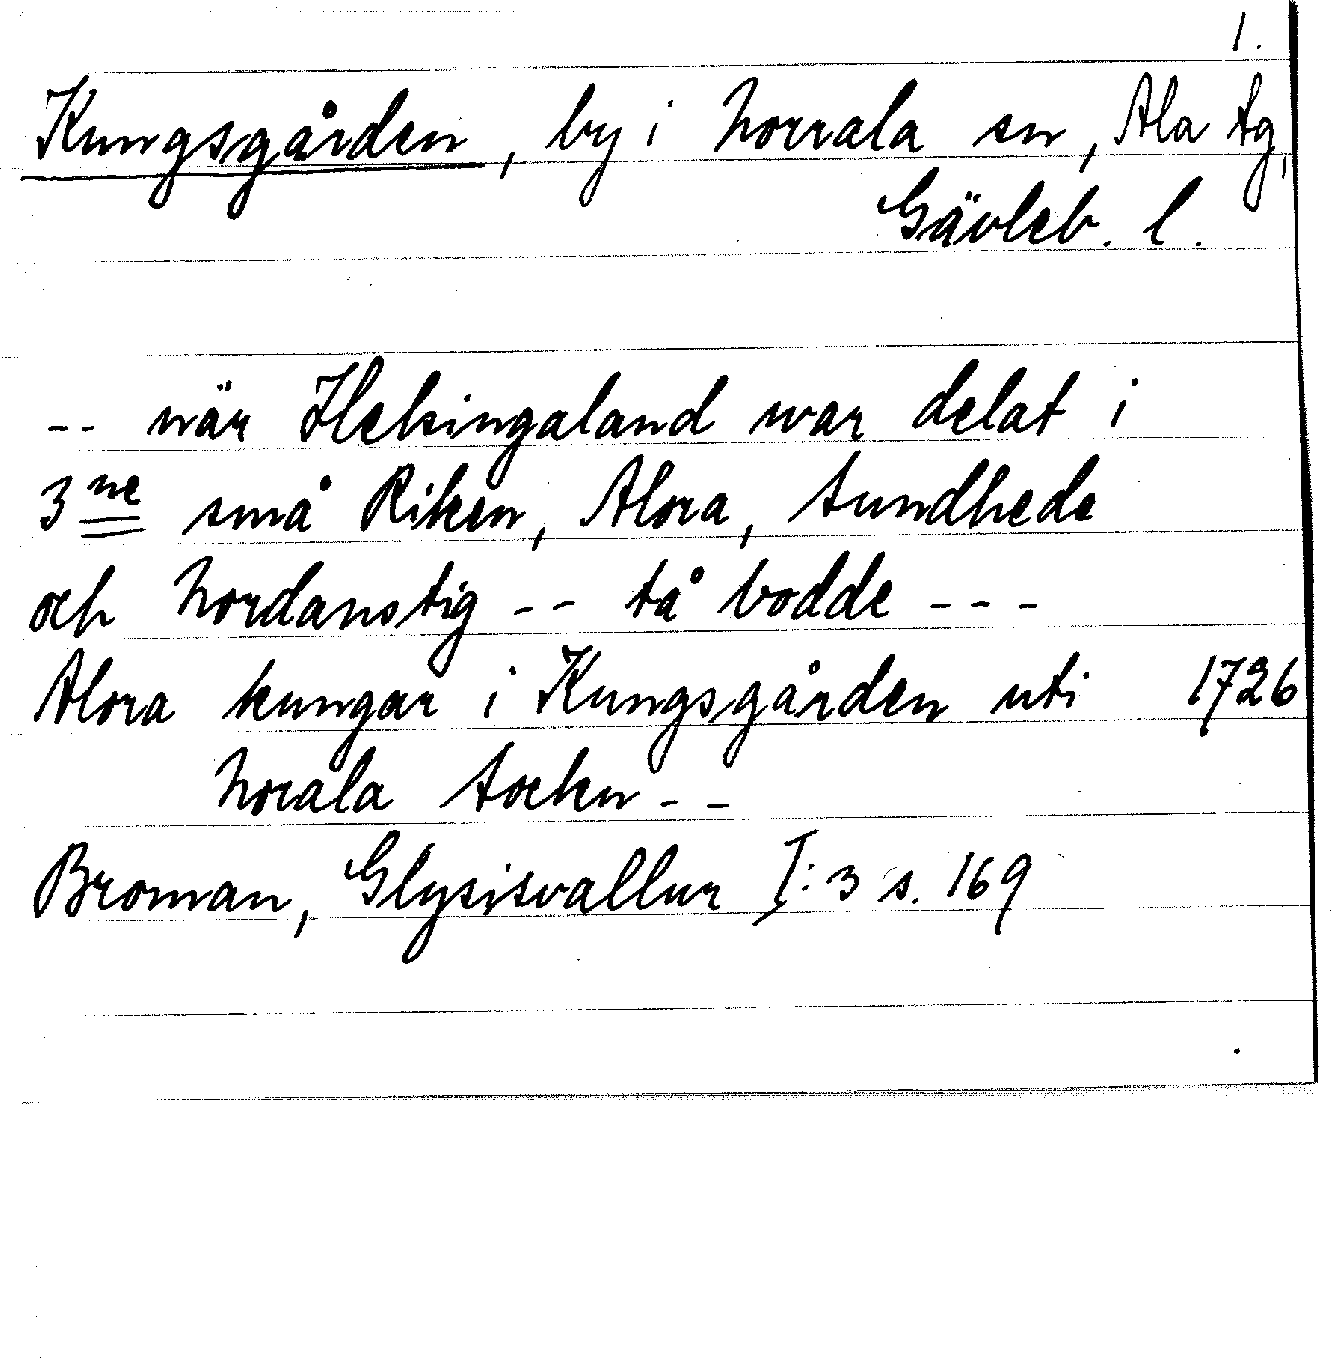 1.
Kungsgården, by i Norrala sn, Ala tg,
Gävleb. l.
-- när Helsingaland war delat i
3ne små Riken, Alora, Sundhede
och Nordanstig -- tå bodde ---
Alora kungar i Kungsgården uti 1726
Norala Sockn --
Broman, Glysisvallur I:3 s. 169